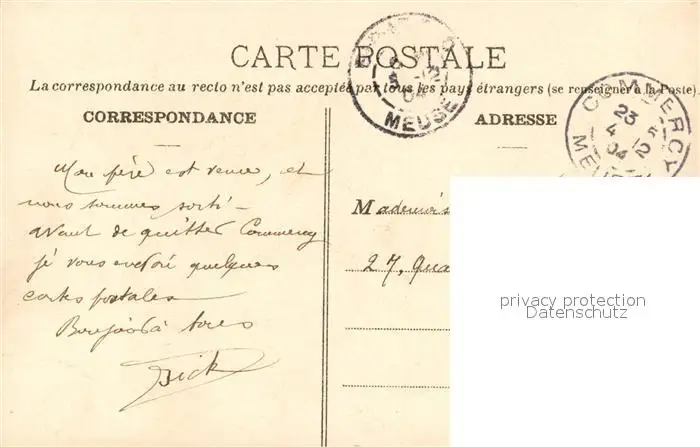 CARTE POSTALE
La correspondance au recto n'est pas acceptée par tous les pays étrangers (se renseigner à la Poste).
CORRESPONDANCE
Mon père est venu, et
nous sommes sorti-
avant de quitter Commercy
je vous envoie quelques
cartes postales
Bonjour à tous
Dick
ADRESSE
Mademois
27, Qua
MEUSE
COMMERCY
23
4
04
privacy protection
Datenschutz